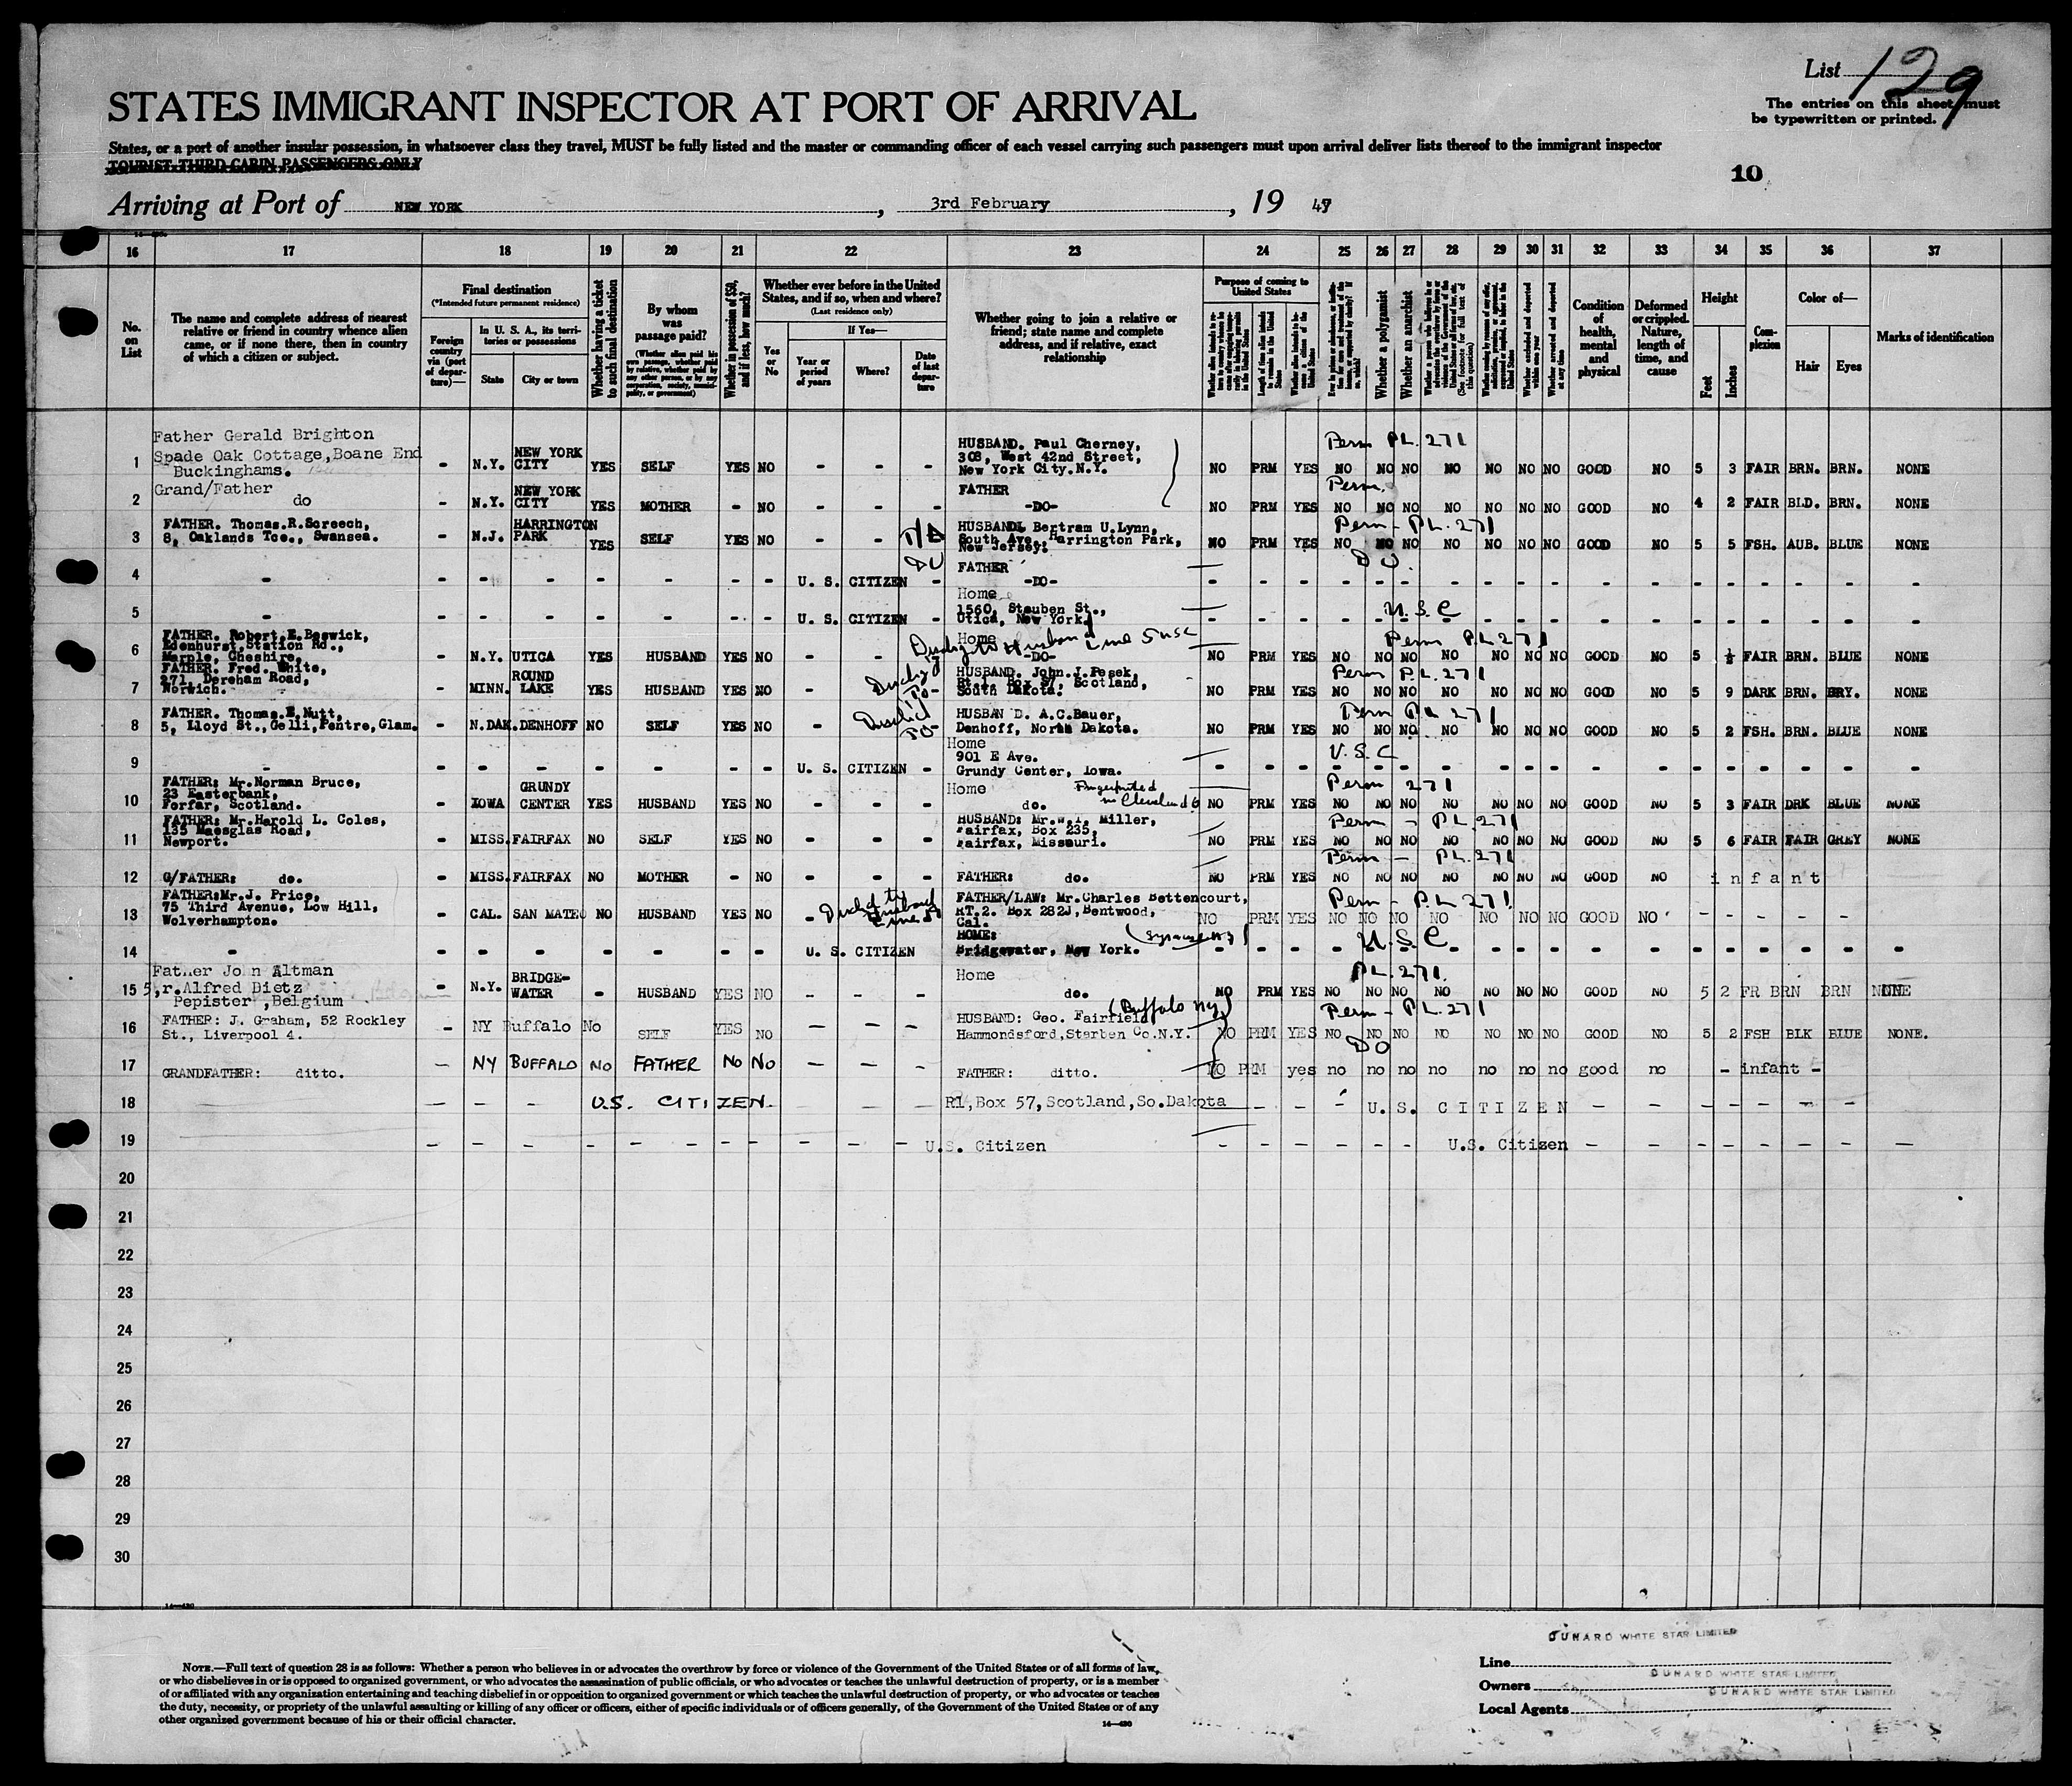 List 129
The entries on this sheet must
be typewritten or printed.
STATES IMMIGRANT INSPECTOR AT PORT OF ARRIVAL
States, or a port of another insular possession, in whatsoever class they travel, MUST be fully listed and the master or commanding officer of each vessel carrying such passengers must upon arrival deliver lists thereof to the immigrant inspector
TOURIST THIRD CABIN PASSENGERS ONLY
10
Arriving at Port of NEW YORK, 3rd February, 19 47
16 17 18 19 20 21 22 23 24 25 26 27 28 29 30 31 32 33 34 35 36 37
No. on List
The name and complete address of nearest relative or friend in country whence alien came, or if none there, then in country of which a citizen or subject.
Final destination
(*Intended future permanent residence)
Foreign country via (port of departure)—
In U. S. A., its territories or possessions
State
City or town
Whether having a ticket to such final destination
By whom was passage paid?
Whether in possession of $50, and if less, how much?
Whether ever before in the United States, and if so, when and where?
(Last residence only)
Yes or No
If Yes—
Year or period of years
Where?
Date of last departure
Whether going to join a relative or friend; state name and complete address, and if relative, exact relationship
Purpose of coming to United States
Whether a polygamist
Whether an anarchist
Condition of health, mental and physical
Deformed or crippled. Nature, length of time, and cause
Height
Feet
Inches
Complexion
Color of—
Hair
Eyes
Marks of identification
1 Father Gerald Brighton
Spade Oak Cottage, Boane End
Buckinghams.
- N.Y. NEW YORK CITY YES SELF YES NO - - - HUSBAND. Paul Cherney,
308, West 42nd Street,
New York City.N.Y.
Perm PL. 271
NO PRM YES NO NO NO NO NO NO NO GOOD NO 5 3 FAIR BRN. BRN. NONE
2 Grand/Father
do
- N.Y. NEW YORK CITY YES MOTHER - NO - - - FATHER
-DO-
Perm.
NO PRM YES NO NO NO NO NO NO NO GOOD NO 4 2 FAIR BLD. BRN. NONE
3 FATHER. Thomas.R.Screech,
8, Oaklands Tce., Swansea.
- N.J. HARRINGTON PARK YES SELF YES NO - - HUSBAND. Bertram U.Lynn,
South Ave., Harrington Park,
New Jersey.
Perm - PL. 271
NO PRM YES NO NO NO NO NO NO NO GOOD NO 5 5 FSH. AUB. BLUE NONE
4 - - - - - - - - U. S. CITIZEN - FATHER
-DO-
DO.
5 - - - - - - - - U. S. CITIZEN - Home
1560, Steuben St.,
Utica, New York.
U.S.C
6 FATHER. Robert.E.Beswick,
Edenhurst,Station Rd.,
Marple, Cheshire.
- N.Y. UTICA YES HUSBAND YES NO - - Home
-DO-
Perm PL 271
NO PRM YES NO NO NO NO NO NO NO GOOD NO 5 FAIR BRN. BLUE NONE
7 FATHER. Fred. White,
271, Dereham Road,
Norwich.
- MINN. ROUND LAKE YES HUSBAND YES NO - HUSBAND. John.J.Pesek,
Rt.1. Box 57, Scotland,
South Dakota.
Perm PL. 271
NO PRM YES NO NO NO NO NO NO NO GOOD NO 5 9 DARK BRN. GRY. NONE
8 FATHER. Thomas.E.Nutt,
5, Lloyd St.,Gelli,Pentre,Glam.
- N.DAK. DENHOFF NO SELF YES NO - HUSBAN D. A.C.Bauer,
Denhoff, North Dakota.
Perm PL 271
NO PRM YES NO NO NO NO NO NO NO GOOD NO 5 2 FSH. BRN. BLUE NONE
9 - - - - - - - - U. S. CITIZEN - Home
901 E Ave.
Grundy Center, Iowa.
U.S.C
10 FATHER: Mr.Norman Bruce,
23 Easterbank,
Forfar, Scotland.
- IOWA GRUNDY CENTER YES HUSBAND YES NO - - - Home
do. Fingerprinted
in Cleveland O
Perm 271
NO PRM YES NO NO NO NO NO NO NO GOOD NO 5 3 FAIR DRK BLUE NONE
11 FATHER: Mr.Harold L. Coles,
135 Maesglas Road,
Newport.
- MISS. FAIRFAX NO SELF YES NO - - - HUSBAND: Mr.W.I. Miller,
Fairfax, Box 235,
Fairfax, Missouri.
Perm - PL. 271
NO PRM YES NO NO NO NO NO NO NO GOOD NO 5 6 FAIR FAIR GREY NONE
12 G/FATHER: do.
- MISS. FAIRFAX NO MOTHER - NO - - - FATHER: do.
Perm - PL. 271
NO PRM YES NO NO NO NO NO NO NO GOOD NO infant
13 FATHER:Mr.J. Price,
75 Third Avenue, Low Hill,
Wolverhampton.
- CAL. SAN MATEO NO HUSBAND YES NO - FATHER/LAW: Mr.Charles Bettencourt,
RT.2. Box 282J, Bentwood,
Cal.
Perm - PL. 271
NO PRM YES NO NO NO NO NO NO NO GOOD NO - - - - - -
14 - - - - - - - - U. S. CITIZEN HOME:
Bridgewater, New York.
(Syracuse NY)
U.S.C
15 Father John Altman
5,r.Alfred Dietz
Pepister ,Belgium
- N.Y. BRIDGE-WATER - HUSBAND YES NO - - - Home
do.
PL. 271.
NO PRM YES NO NO NO NO NO NO NO GOOD NO 5 2 FR BRN BRN NONE
16 FATHER: J. Graham, 52 Rockley
St., Liverpool 4.
- NY Buffalo No SELF YES NO - - - HUSBAND: Geo. Fairfield
Hammondsford,Starben Co.N.Y.
(Buffalo NY)
Perm - PL. 271
NO PRM YES NO NO NO NO NO NO NO GOOD NO 5 2 FSH BLK BLUE NONE.
17 GRANDFATHER: ditto.
- NY BUFFALO NO FATHER NO NO - - - FATHER: ditto.
DO
NO PRM yes no no no no no no no good no - infant -
18 - - - U.S. CITIZEN - - - R1,Box 57,Scotland,So.Dakota - - - U.S. CITIZEN - - - - - - -
19 - - - - - - - - - - U.S. Citizen - - - - - - U.S. Citizen - - - - - - -
20
21
22
23
24
25
26
27
28
29
30
14—430
NOTE.—Full text of question 28 is as follows: Whether a person who believes in or advocates the overthrow by force or violence of the Government of the United States or of all forms of law,
or who disbelieves in or is opposed to organized government, or who advocates the assassination of public officials, or who advocates or teaches the unlawful destruction of property, or is a member
of or affiliated with any organization entertaining and teaching disbelief in or opposition to organized government or which teaches the unlawful destruction of property, or who advocates or teaches
the duty, necessity, or propriety of the unlawful assaulting or killing of any officer or officers, either of specific individuals or of officers generally, of the Government of the United States or of any
other organized government because of his or their official character.
14—430
CUNARD WHITE STAR LIMITED
Line
Owners CUNARD WHITE STAR LIMITED
Local Agents CUNARD WHITE STAR LIMITED